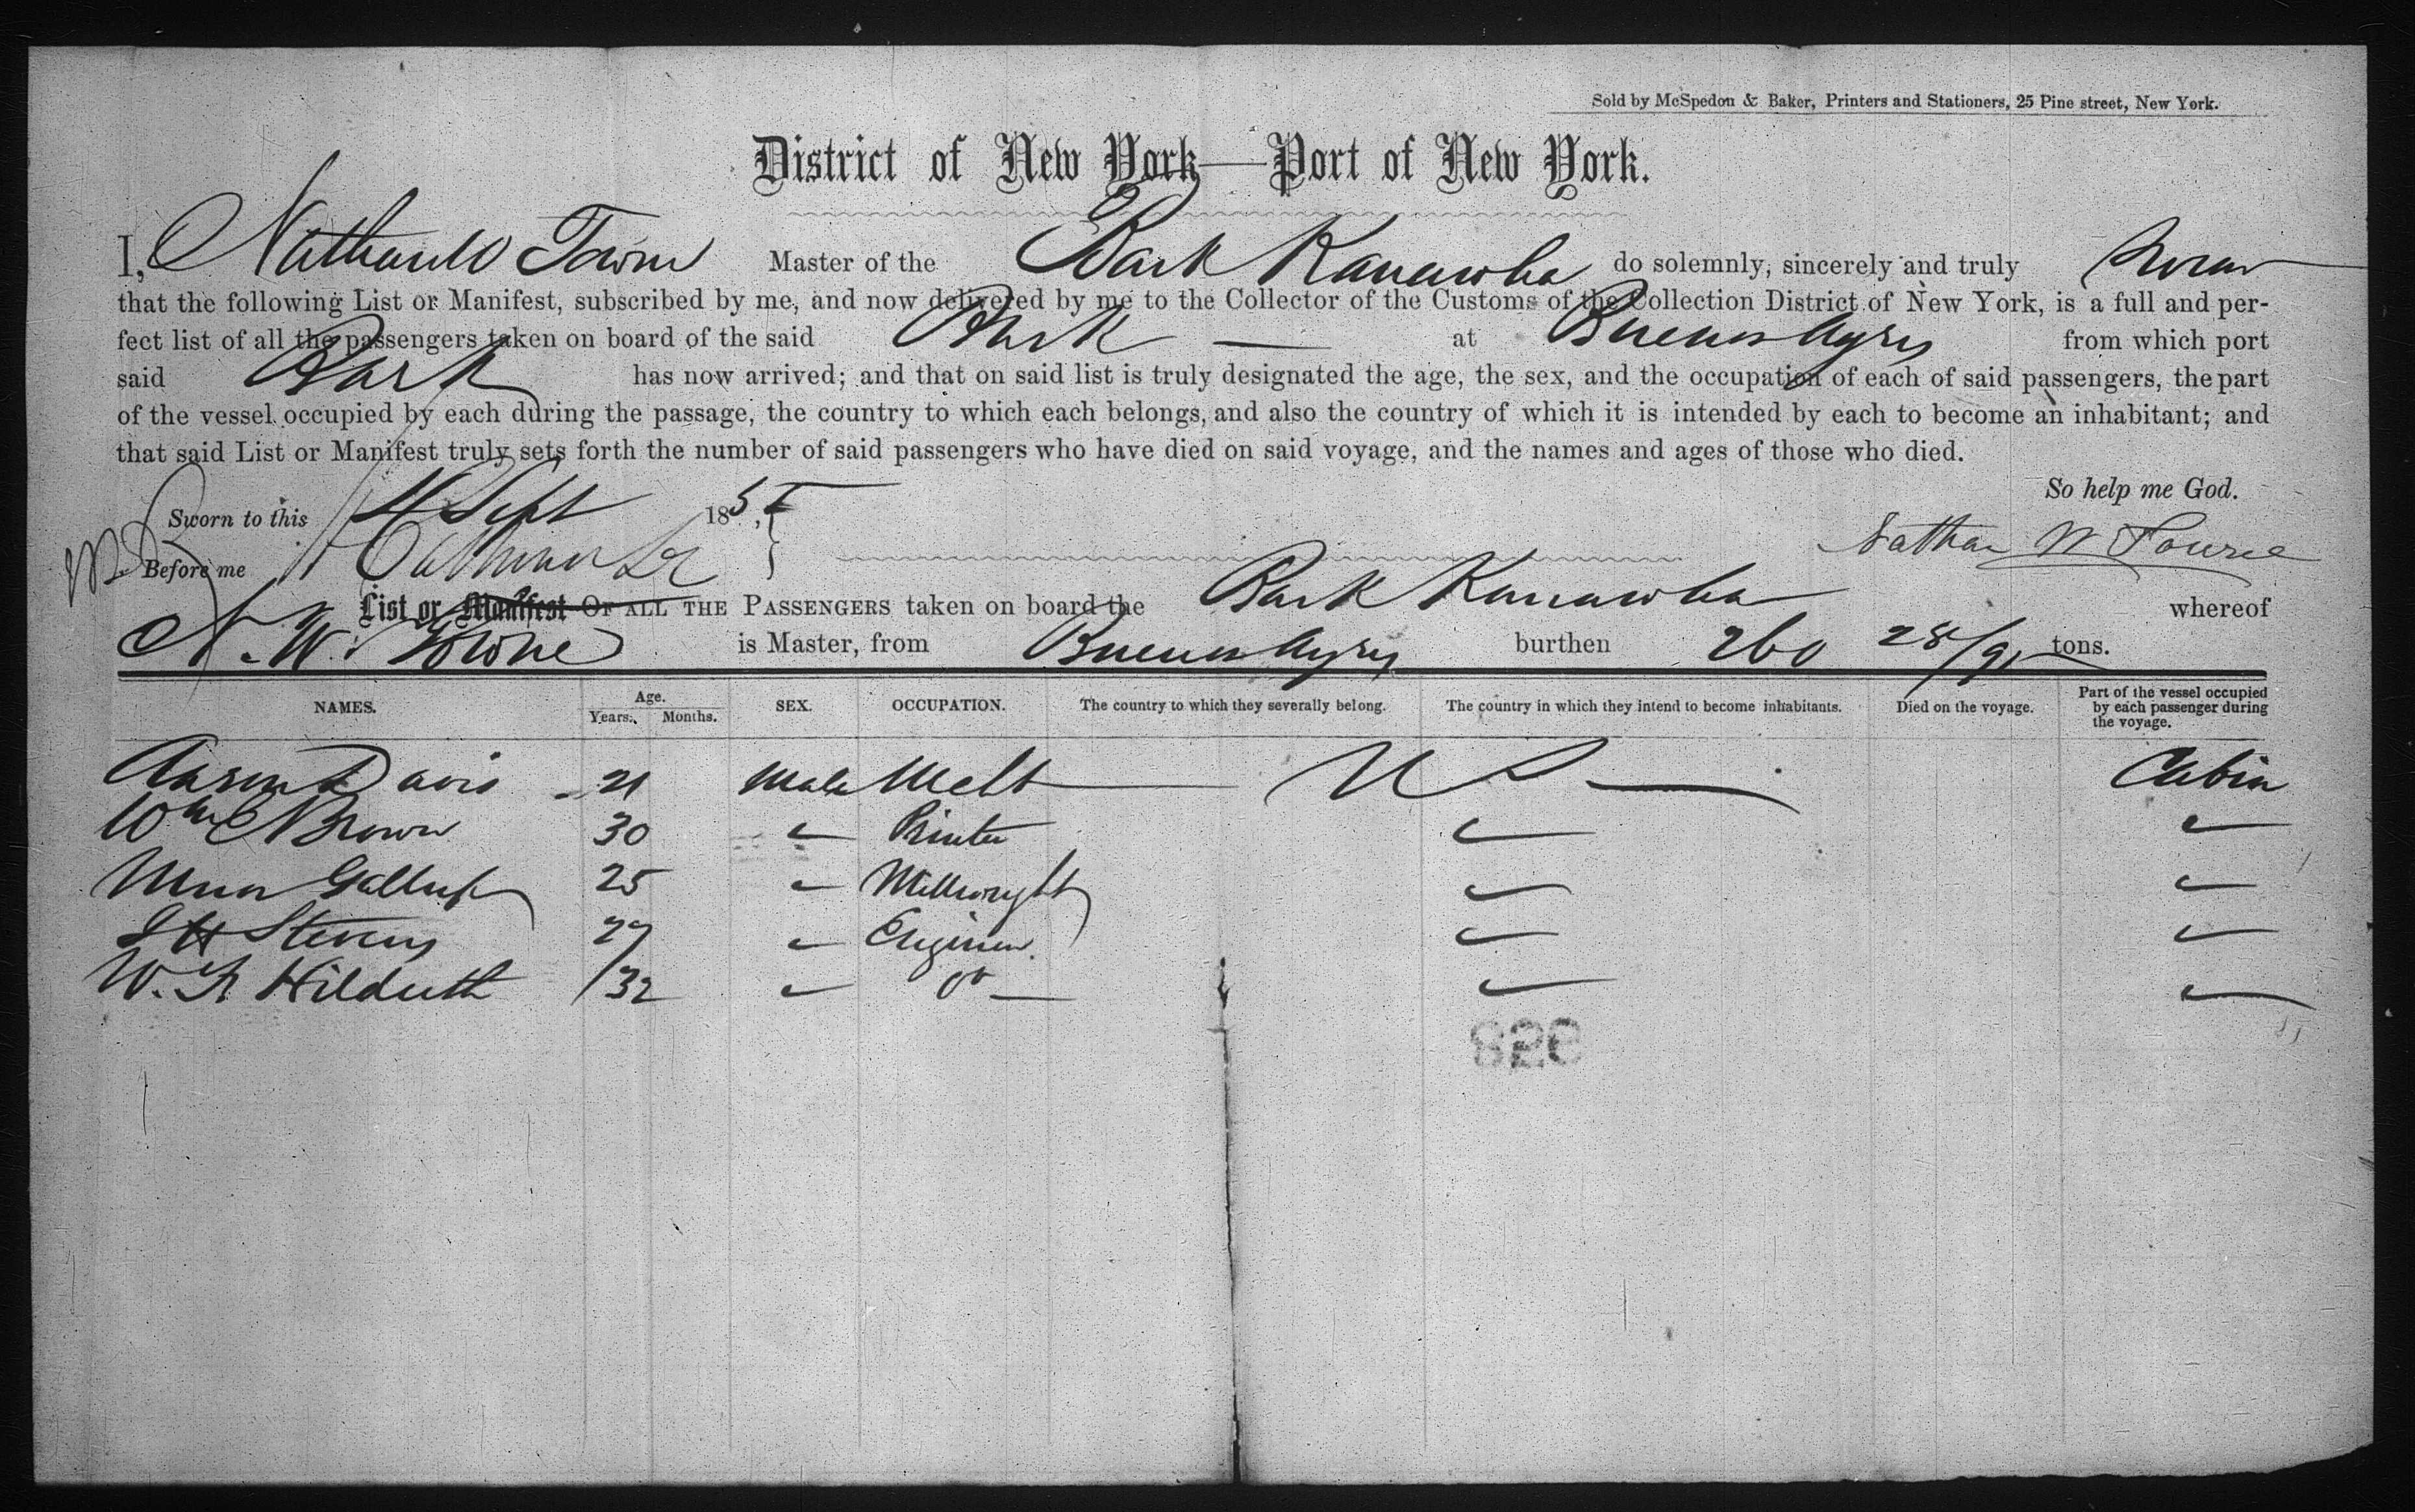 Sold by McSpedon & Baker, Printers and Stationers, 25 Pine street, New York.
District of New York—Port of New York.
I, Nathan W Town Master of the Bark Kanawha do solemnly, sincerely and truly swear
that the following List or Manifest, subscribed by me, and now delivered by me to the Collector of the Customs of the Collection District of New York, is a full and per-
fect list of all the passengers taken on board of the said Bark — at Buenos Ayres from which port
said Bark has now arrived; and that on said list is truly designated the age, the sex, and the occupation of each of said passengers, the part
of the vessel occupied by each during the passage, the country to which each belongs, and also the country of which it is intended by each to become an inhabitant; and
that said List or Manifest truly sets forth the number of said passengers who have died on said voyage, and the names and ages of those who died.
So help me God.
Sworn to this 4 Sept 185
Before me
Nathan W Towne
List or Manifest OF ALL THE PASSENGERS taken on board the Bark Kanawha whereof
N. W. Towne is Master, from Buenos Ayres burthen 260 28/95 tons.
NAMES. Age. Years. Months. SEX. OCCUPATION. The country to which they severally belong. The country in which they intend to become inhabitants. Died on the voyage. Part of the vessel occupied by each passenger during the voyage.
Aaron Davis 21 Male U S Cabin
Wm C Brown 30 " Printer " "
Gallup 25 " Millwright " "
Stevens 27 " Engineer " "
W. F. Hildreth 32 " Do " "
826